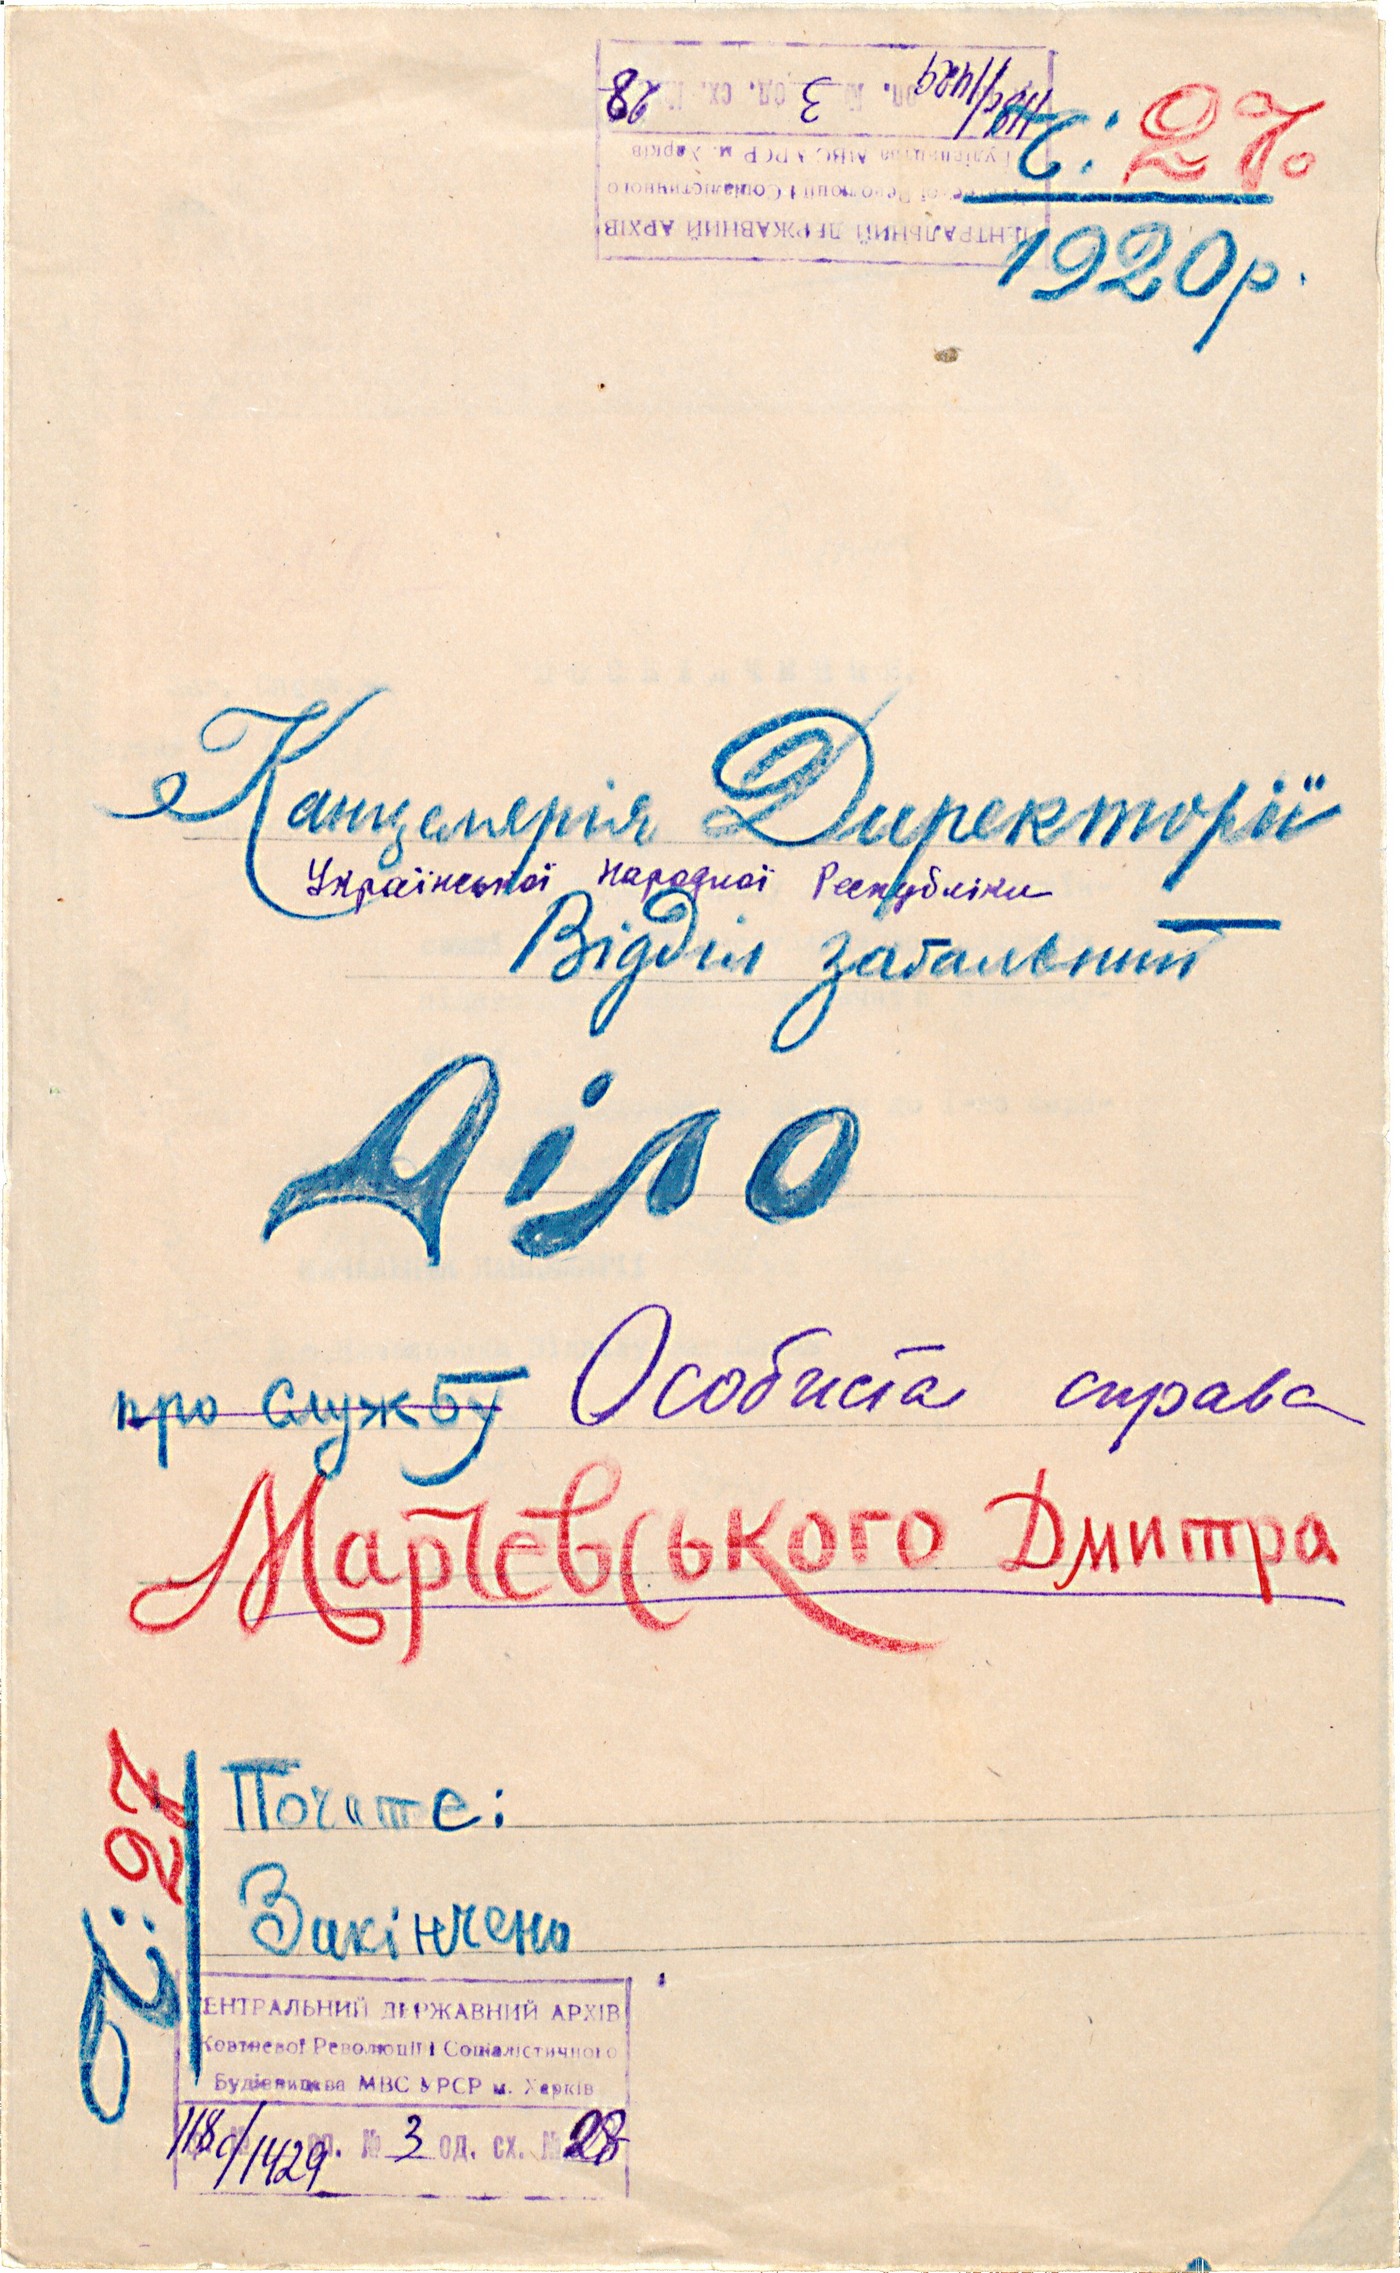 Ч. 27.
1920 р.
ЦЕНТРАЛЬНИЙ ДЕРЖАВНИЙ АРХІВ
Жовтневої Революції і Соціалістичного
Будівництва МВС УРСР м. Харків
1429 оп. № 3 од. сх. № 28
Канцелярія Директорії
Української Народної Республіки
Відділ загальний
Діло
про службу Особиста справа
Марієвського Дмитра
Ч. 27
Почате:
Закінчено
ЦЕНТРАЛЬНИЙ ДЕРЖАВНИЙ АРХІВ
Жовтневої Революції і Соціалістичного
Будівництва МВС УРСР м. Харків
1429 оп. № 3 од. сх. № 28